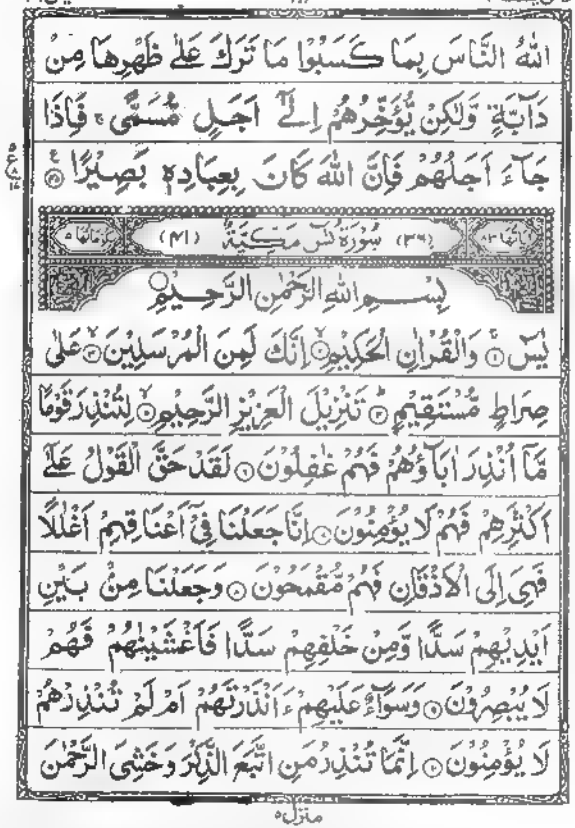 اللهُ النَّاسَ بِمَا كَسَبُوْا مَا تَرَكَ عَلٰى ظَهْرِهَا مِنْ
دَآبَّةٍ وَّلٰكِنْ يُّؤَخِّرُهُمْ اِلٰٓى اَجَلٍ مُّسَمًّى ۚ فَاِذَا
جَآءَ اَجَلُهُمْ فَاِنَّ اللهَ كَانَ بِعِبَادِهٖ بَصِيْرًا
(٣٦) سُوْرَةُ يٰسٓ مَكِّيَّةٌ (٤١)
بِسْمِ اللهِ الرَّحْمٰنِ الرَّحِيْمِ
يٰسٓ ۝١ وَالْقُرْاٰنِ الْحَكِيْمِ ۝٢ اِنَّكَ لَمِنَ الْمُرْسَلِيْنَ ۝٣ عَلٰى
صِرَاطٍ مُّسْتَقِيْمٍ ۝٤ تَنْزِيْلَ الْعَزِيْزِ الرَّحِيْمِ ۝٥ لِتُنْذِرَ قَوْمًا
مَّآ اُنْذِرَ اٰبَآؤُهُمْ فَهُمْ غٰفِلُوْنَ ۝٦ لَقَدْ حَقَّ الْقَوْلُ عَلٰٓى
اَكْثَرِهِمْ فَهُمْ لَا يُؤْمِنُوْنَ ۝٧ اِنَّا جَعَلْنَا فِيْٓ اَعْنَاقِهِمْ اَغْلٰلًا
فَهِيَ اِلَى الْاَذْقَانِ فَهُمْ مُّقْمَحُوْنَ ۝٨ وَجَعَلْنَا مِنْۢ بَيْنِ
اَيْدِيْهِمْ سَدًّا وَّمِنْ خَلْفِهِمْ سَدًّا فَاَغْشَيْنٰهُمْ فَهُمْ
لَا يُبْصِرُوْنَ ۝٩ وَسَوَآءٌ عَلَيْهِمْ ءَاَنْذَرْتَهُمْ اَمْ لَمْ تُنْذِرْهُمْ
لَا يُؤْمِنُوْنَ ۝١٠ اِنَّمَا تُنْذِرُ مَنِ اتَّبَعَ الذِّكْرَ وَخَشِيَ الرَّحْمٰنَ
منزل ٥